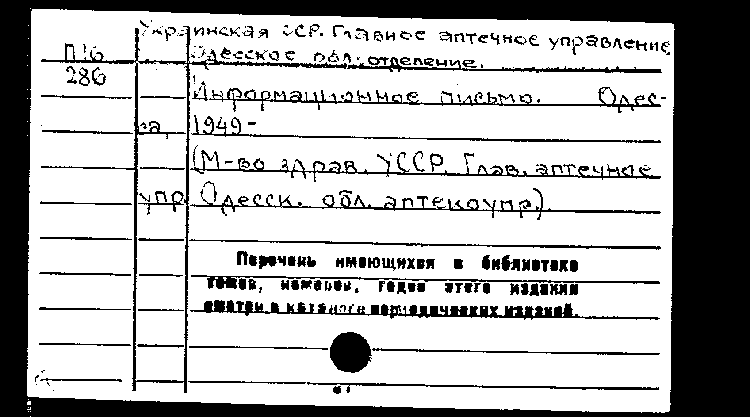 Украинская ССР. Главное аптечное управление
П16 Одесское обл. отделение.
286
Информационное письмо. Одес-
са, 1949-
(М-во здрав. УССР. Глав. аптечное
упр. Одесск. обл. аптекоупр.).
Перечень имеющихся в библиотеке
томов, номеров, годов этого издания
смотри в каталоге периодических изданий.